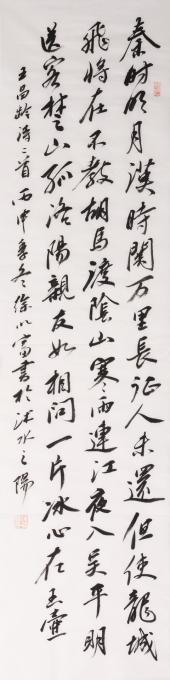 秦时明月漢時関万里長征人未還但使龍城
飛将在不教胡馬渡陰山寒雨連江夜入吴平明
送客楚山孤洛陽親友如相問一片冰心在玉壷
王昌龄诗二首丙申季冬徐以富書於沭水之陽